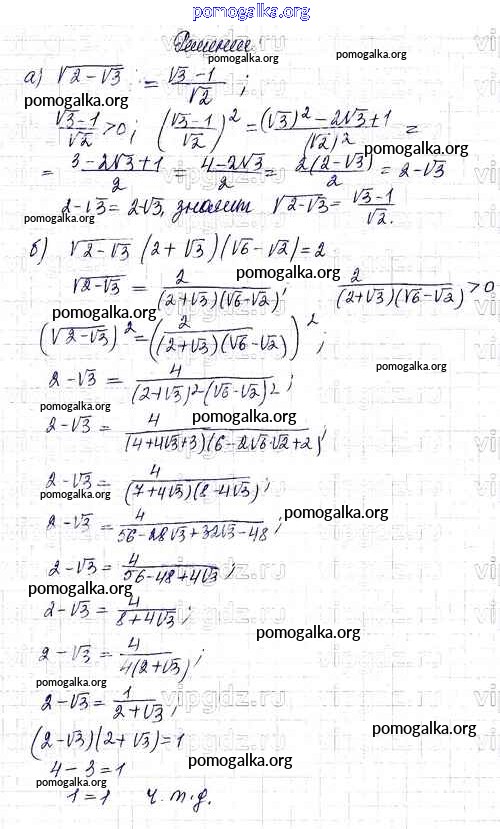 pomogalka.org
Решение.
а) √(2-√3) = (√3-1)/√2 ;
pomogalka.org
pomogalka.org
(√3-1)/√2 > 0; ((√3-1)/√2)² = ((√3)² - 2√3+1)/(√2)² =
pomogalka.org
= (3-2√3+1)/2 = (4-2√3)/2 = 2(2-√3)/2 = 2-√3
2-√3 = 2-√3, значит √(2-√3) = (√3-1)/√2.
pomogalka.org
pomogalka.org
б) √(2-√3) (2+√3)(√6-√2)=2
pomogalka.org
√(2-√3) = 2/((2+√3)(√6-√2)); 2/((2+√3)(√6-√2)) > 0
pomogalka.org
pomogalka.org
(√(2-√3))² = (2/((2+√3)(√6-√2)))² ;
pomogalka.org
2-√3 = 4/((2+√3)²(√6-√2)²) ;
pomogalka.org
pomogalka.org
2-√3 = 4/((4+4√3+3)(6-2√6·√2+2)) ;
pomogalka.org
2-√3 = 4/((7+4√3)(8-4√3)) ;
pomogalka.org
pomogalka.org
2-√3 = 4/(56-28√3+32√3-48) ;
pomogalka.org
2-√3 = 4/(56-48+4√3) ;
pomogalka.org
pomogalka.org
2-√3 = 4/(8+4√3) ;
pomogalka.org
2-√3 = 4/(4(2+√3)) ;
pomogalka.org
2-√3 = 1/(2+√3) ;
pomogalka.org
(2-√3)(2+√3)=1
pomogalka.org
4-3=1
pomogalka.org
1=1 ч.т.д.
pomogalka.org